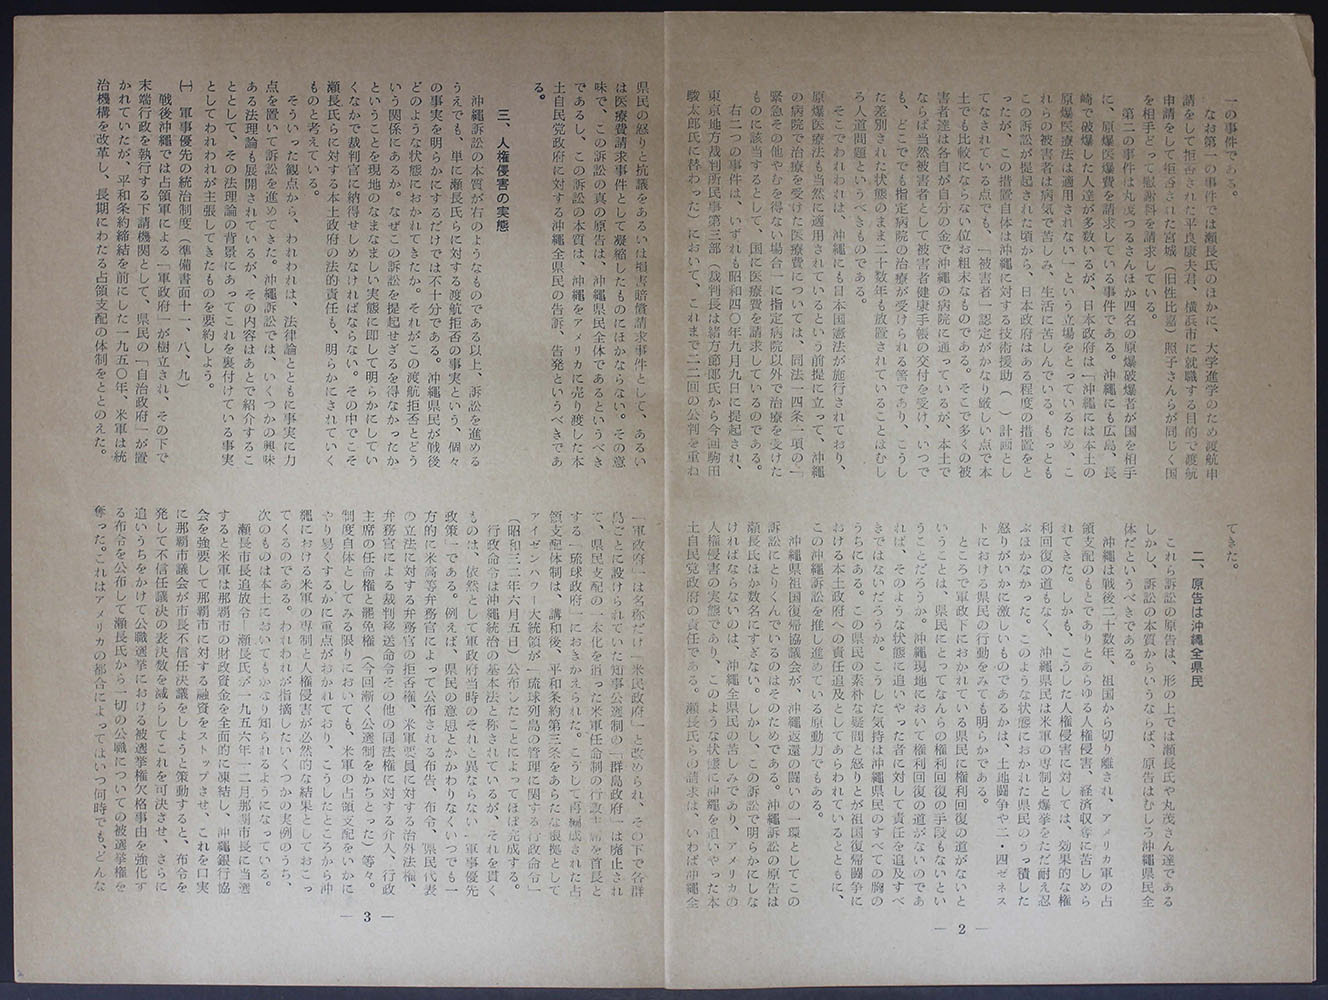 一の事件である。
なお第一の事件では瀬長氏のほかに、大学進学のため渡航申
請をして拒否された平良康夫君、横浜市に就職する目的で渡航
申請して拒否された宮城(旧性比嘉)照子さんらが同じく国
を相手どって慰謝料を請求している。
第二の事件は丸茂つるさんほか四名の原爆破爆者が国を相手
に、原爆医爆費を請求している事件である。沖縄にも広島、長
崎で破爆した人達が多数いるが、日本政府は「沖縄には本土の
原爆医療法は適用されない」という立場をとっているため、こ
れらの被害者は病気で苦しみ、生活に苦しんでいる。もっとも
この訴訟が提起された頃から、日本政府はある程度の措置をと
ったが、この措置自体は沖縄に対する技術援助( )計画とし
てなされている点でも、「被害者」認定がかなり厳しい点で本
土でも比較にならない位お粗末なものである。そこで多くの被
害者達は各自が自分の金で沖縄の病院に通っているが、本土で
ならば当然被害者として被害者健康手帳の交付を受け、いつで
も、どこででも指定病院の治療が受けられる筈であり、こうし
た差別された状態のまま二十数年も放置されていることはむし
ろ人道問題というべきものである。
そこでわれわれは、沖縄にも日本国憲法が施行されており、
原爆医療法も当然に適用されているという前提に立って、沖縄
の病院で治療を受けた医療費については、同法一四条一項の「
緊急その他やむを得ない場合」に指定病院以外で治療を受けた
ものに該当するとして、国に医療費を請求しているのである。
右二つの事件は、いずれも昭和四〇年九月九日に提起され、
東京地方裁判所民事第三部(裁判長は緒方節郎氏から今回駒田
駿太郎氏に替わった)において、これまで二二回の公判を重ね
てきた。
二、原告は沖縄全県民
これら訴訟の原告は、形の上では瀬長氏や丸茂さん達である
しかし、訴訟の本質からいうならば、原告はむしろ沖縄県民全
体だというべきである。
沖縄は戦後二十数年、祖国から切り離され、アメリカ軍の占
領支配のもとでありとあらゆる人権侵害、経済収奪に苦しめら
れてきた。しかも、こうした人権侵害に対しては、効果的な権
利回復の道もなく、沖縄県民は米軍の専制と爆挙をただ耐え忍
ぶほかなかった。このような状態におかれた県民のうっ積した
怒りがいかに激しいものであるかは、土地闘争や二・四ゼネス
トにおける県民の行動をみても明らかである。
ところで軍政下におかれている県民に権利回復の道がないと
いうことは、県民にとってなんらの権利回復の手段もないとい
うことだろうか。沖縄現地において権利回復の道がないのであ
れば、そのような状態に追いやった者に対して責任を追及すべ
きではないだろうか。こうした気持は沖縄県民のすべての胸の
うちにある。この県民の素朴な疑問と怒りとが祖国復帰闘争に
おける本土政府への責任追及としてあらわれているとともに、
この沖縄訴訟を推し進めている原動力でもある。
沖縄県祖国復帰協議会が、沖縄返還の闘いの一環としてこの
訴訟にとりくんでいるのはそのためである。沖縄訴訟の原告は
瀬長氏ほか数名にすぎない。しかし、この訴訟で明らかにしな
ければならないのは、沖縄全県民の苦しみであり、アメリカの
人権侵害の実態であり、このような状態に沖縄を追いやった本
土自民党政府の責任である。瀬長氏らの請求は、いわば沖縄全
— 2 —
県民の怒りと抗議をあるいは損害賠償請求事件として、あるい
は医療費請求事件として凝縮したものにほかならない。その意
味で、この訴訟の真の原告は、沖縄県民全体であるというべき
であるし、この訴訟の本質は、沖縄をアメリカに売り渡した本
土自民党政府に対する沖縄全県民の告訴、告発というべきであ
る。
三、人権侵害の実態
沖縄訴訟の本質が右のようなものである以上、訴訟を進める
うえでも、単に瀬長氏らに対する渡航拒否の事実という、個々
の事実を明らかにするだけでは不十分である。沖縄県民が戦後
どのような状態におかれてきたか。それがこの渡航拒否とどう
いう関係にあるか。なぜこの訴訟を提起せざるを得なかったか
ということを現地のなまなましい実態に即して明らかにしてい
くなかで裁判官に納得せしめなければならない。その中でこそ
瀬長氏らに対する本土政府の法的責任も、明らかにされていく
ものと考えている。
そういった観点から、われわれは、法律論とともに事実に力
点を置いて訴訟を進めてきた。沖縄訴訟では、いくつかの興味
ある法理論も展開されているが、その内容はあとで紹介するこ
ととして、その法理論の背景にあってこれを裏付けている事実
としてわれわれが主張してきたものを要約しよう。
㈠ 軍事優先の統治制度(準備書面十一、八、九)
戦後沖縄では占領軍による「軍政府」が樹立され、その下で
末端行政を執行する下請機関として、県民の「自治政府」が置
かれていたが、平和条約締結を前にした一九五〇年、米軍は統
治機構を改革し、長期にわたる占領支配の体制をととのえた。
「軍政府」は名称だけ「米民政府」と改められ、その下で各群
島ごとに設けられていた知事公選制の「群島政府」は廃止され
て、県民支配の一本化を追った米軍任命制の行政主席を首長と
する「琉球政府」におきかえられた。こうして再編成された占
領支配体制は、講和後、平和条約第三条をあらたな根拠として
アイゼンハワー大統領が「琉球列島の管理に関する行政命令」
(昭和三二年六月五日)公布したことによってほぼ完成する。
行政命令は沖縄統治の基本法と称されているが、それを貫く
ものは、依然として軍政府当時のそれと異ならない「軍事優先
政策」である。例えば、県民の意思とかかわりなくいつでも一
方的に米高等弁務官によって公布される布告、布令、県民代表
の立法に対する弁務官の拒否権、米軍要員に対する治外法権、
弁務官による裁判移送命令その他の司法権に対する介入、行政
主席の任命権と罷免権(今回漸く公選制をかちとった)等々。
制度自体としてみる限りにおいても、米軍の占領支配をいかに
やり易くするかに重点がおかれており、こうしたところから沖
縄における米軍の専制と人権侵害が必然的な結果としておこっ
てくるのである。われわれが指摘したいくつかの実例のうち、
次のものは本土においてもかなり知られるようになっている。
瀬長市長追放令― 瀬長氏が一九五六年一二月那覇市長に当選
すると米軍は那覇市の財政資金を全面的に凍結し、沖縄銀行協
会を強要して那覇市に対する融資をストップさせ、これを口実
に那覇市議会が市長不信任決議をしようと策動すると、布令を
発して不信任議決の表決数を減らしてこれを可決させ、さらに
追いうちをかけて公職選挙における被選挙権欠格事由を強化す
る布令を公布して瀬長氏から一切の公職についての被選挙権を
奪った。これはアメリカの都合によってはいつ何時でも、どんな
— 3 —